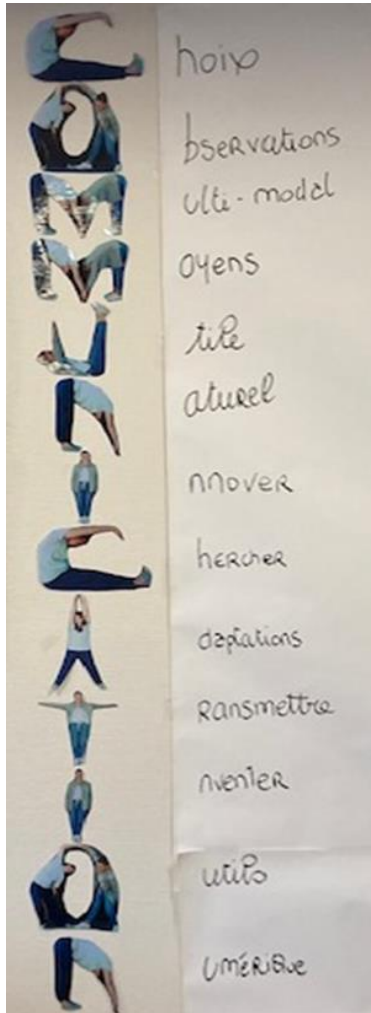 hoix
bservations
ulti-modal
oyens
tile
aturel
nnover
hercher
daptations
Ransmettre
nventer
utils
umérique